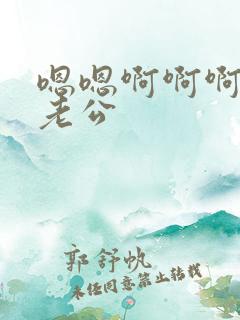 嗯嗯啊啊啊
老公
郭舒帆
未经同意禁止转载